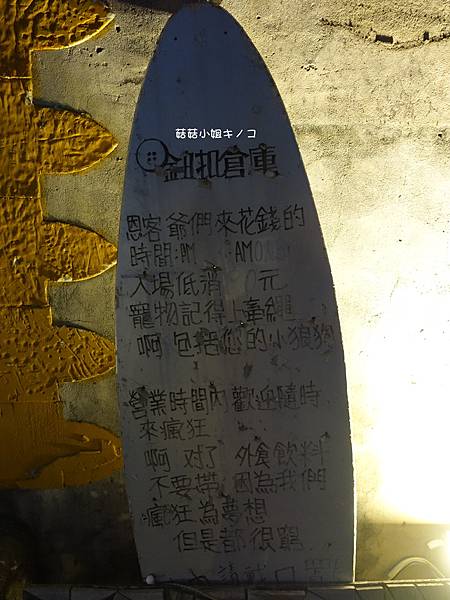 菇菇小姐キノコ
鈕扣倉庫
恩客爺們來花錢的
時間:AM AM
入場低消 0元
寵物記得上牽繩
啊 包括您的小狼狗
營業時間內歡迎隨時
來瘋狂
啊 对了 外食飲料
不要帶 因為我們
瘋狂為夢想
但是都很窮
請戴口罩